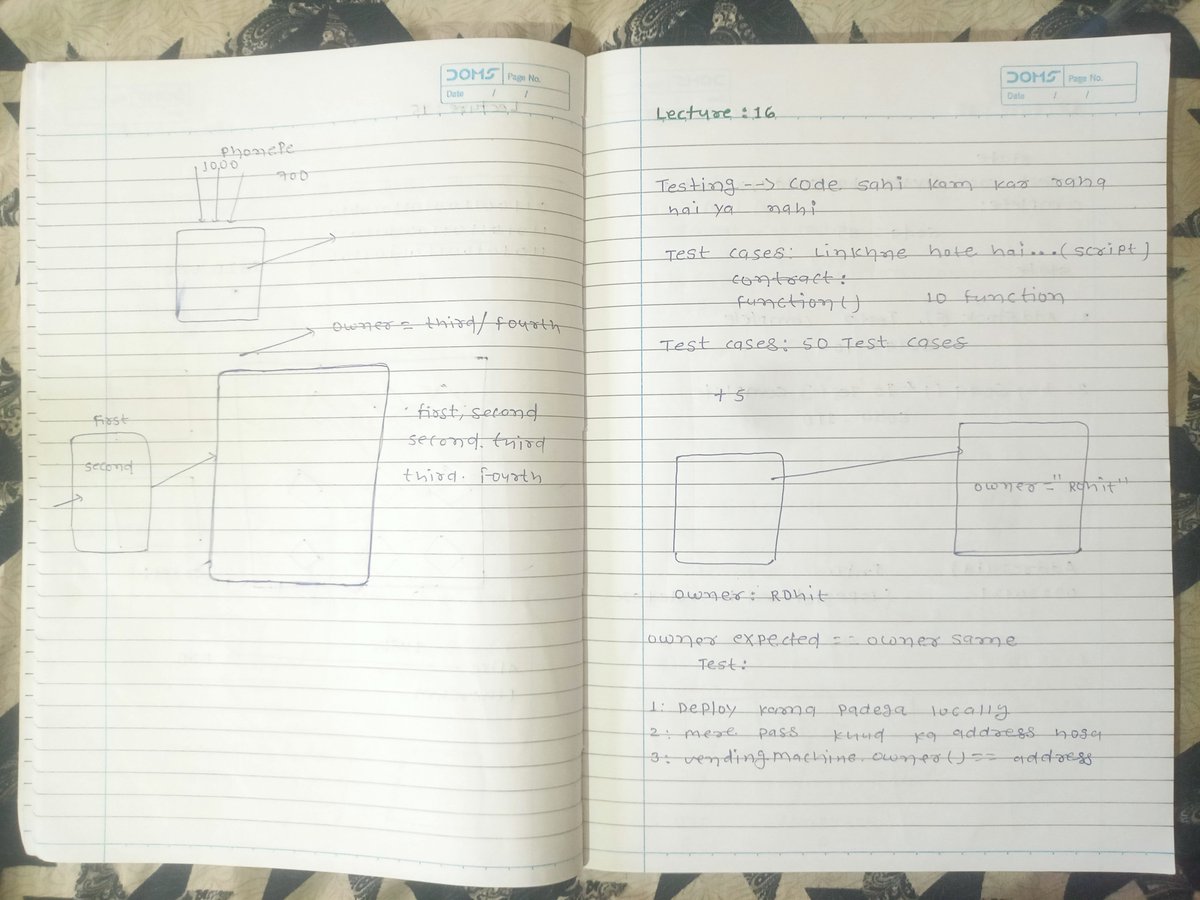 DOMS Page No.
Date / /
PhonePe
1000
900
owner = third/fourth
first
second
first, second
second. third
third. fourth
DOMS Page No.
Date / /
Lecture : 16
Testing --> code sahi kam kar raha
hai ya nahi
Test cases: Linkhne hote hai...(script)
contract:
function() 10 function
Test cases: 50 Test cases
+ 5
owner = "Rohit"
owner: Rohit
owner expected == owner same
Test:
1: Deploy karna padega locally
2: mere pass khud ka address hoga
3: vendingmachine.owner() == address